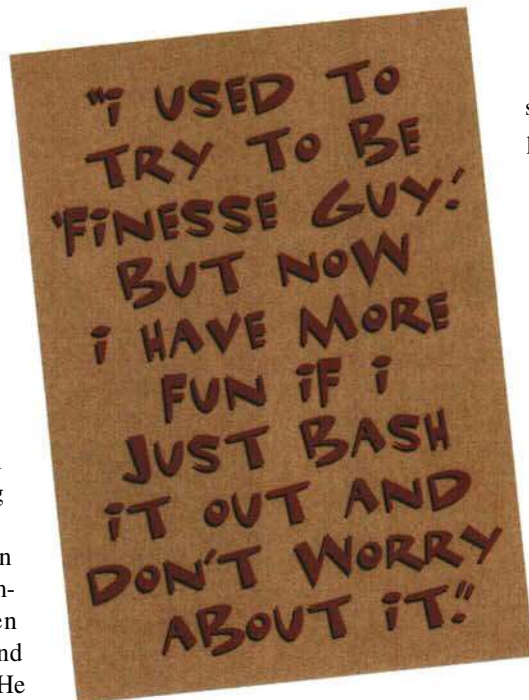 "i USED TO
TRY TO BE
'FiNESSE GUY.'
BUT NOW
i HAVE MORE
FUN iF i
JUST BASH
iT OUT AND
DON'T WORRY
ABOUT iT."
n
en
nd
He